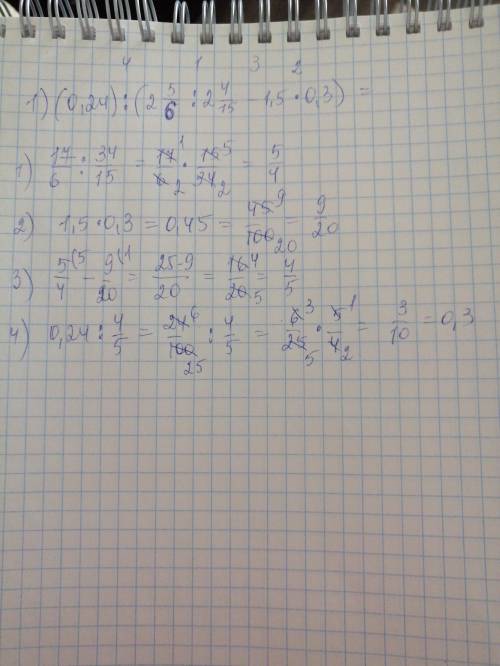 4 1 3 2
1) (0,24) : (2 5/6 : 2 4/15 - 1,5 · 0,3) =
1) 17/6 : 34/15 = 17 1/6 2 · 15 5/34 2 = 5/4
2) 1,5 · 0,3 = 0,45 = 45 9/100 20 = 9/20
3) 5/4 (5 - 9/20 (1 = 25-9/20 = 16 4/20 5 = 4/5
4) 0,24 : 4/5 = 24 6/100 25 : 4/5 = 6 3/25 5 · 5 1/4 2 = 3/10 = 0,3